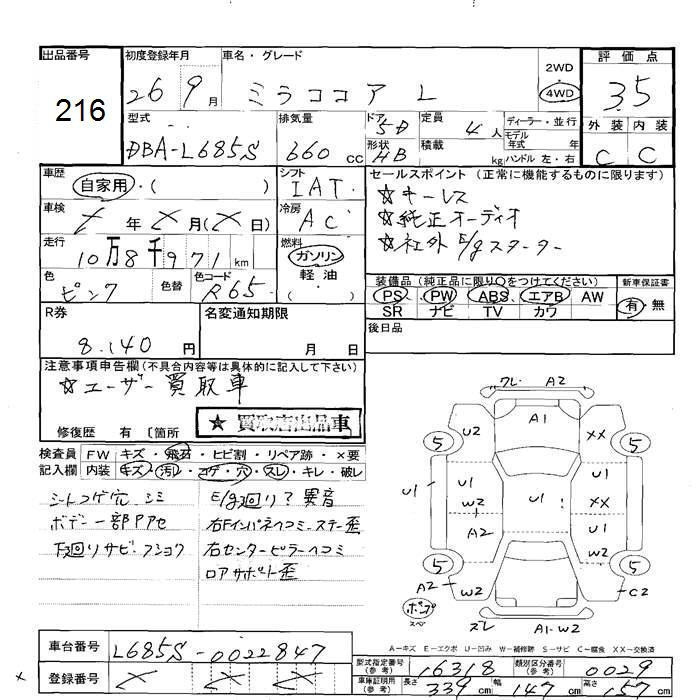 出品番号
216
初度登録年月
26 9月
車名・グレード
ミラココア L
2WD
4WD
評価点
3.5
外装 内装
C C
型式
DBA-L685S
排気量
660 cc
ドア
5D
形状
HB
定員
4人
積載
kg
ディーラー・並行
モデル年式 年
ハンドル 左・右
車歴
自家用・( )
シフト
IAT
セールスポイント (正常に機能するものに限ります)
☆キーレス
☆純正オーディオ
☆社外E/gスターター
車検
年 月( 日)
冷房
AC
走行
10万8千971km
燃料
ガソリン
軽油
( )
色
ピンク
色替
色コード
R65
装備品 (純正品に限り○をつけてください)
PS PW ABS エアB AW
SR ナビ TV カワ
新車保証書
有・無
R券
8.140円
名変通知期限
月 日
後日品
注意事項申告欄(不具合内容等は具体的に記入して下さい)
☆ユーザー買取車
★ 買取店出品車
修復歴 有 〔箇所
検査員記入欄
FW キズ・飛石・ヒビ割・リペア跡・×要
内装 キズ・汚レ・コゲ・穴・スレ・キレ・破レ
シートコゲ穴 シミ
ボデー一部Pアセ
下回りサビ・フショク
E/g回り?異音
右Fインパネヘコミ・ステー歪
右センターピラーヘコミ
ロアサポート歪
ワレ A2
A1
U2
XX
5
5
U1
U1
W2
U1
XX
U1
A2
W2
5
5
A2
W2
C2
ポンプ
スペ
ズレ
A1-W2
A-キズ E-エクボ U-凹み W-補修跡 S-サビ C-腐食 XX-交換済
車台番号
L685S-0022847
登録番号
型式指定番号
(参考)
16318
類別区分番号
(参考)
0029
車庫証明用
(参考)
長さ 339cm 幅 147cm 高さ 157cm